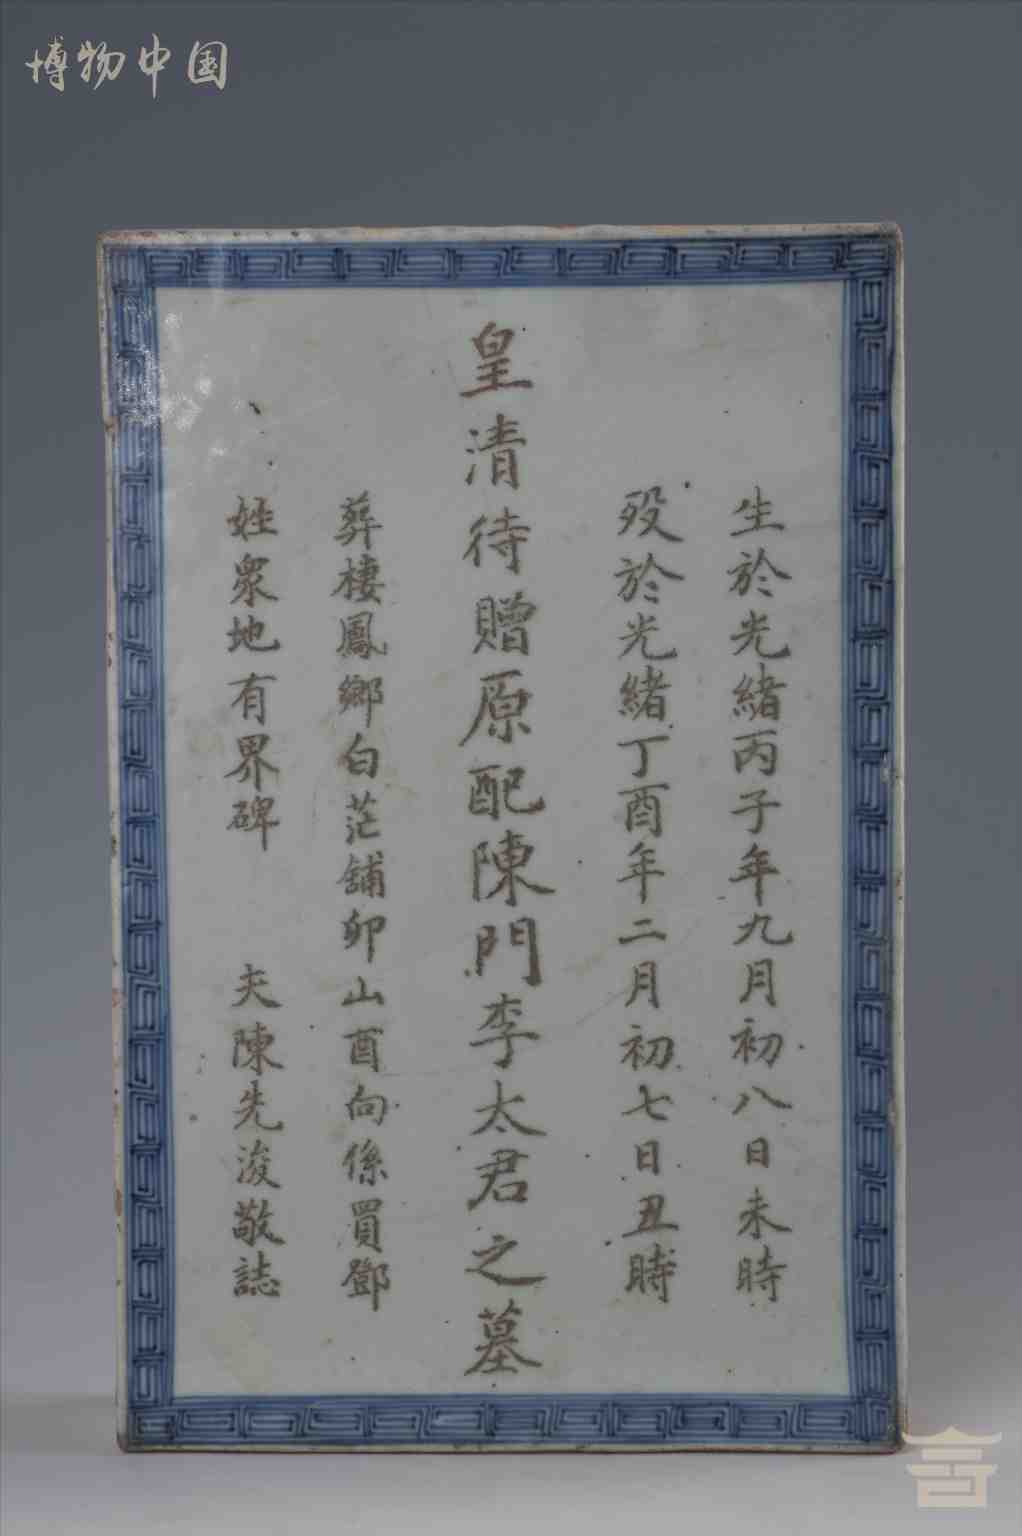 博物中国
生於光緒丙子年九月初八日未時
歿於光緒丁酉年二月初七日丑時
皇清待贈原配陳門李太君之墓
葬棲鳳鄉白茫舖卯山酉向係買鄧
姓眾地有界碑 夫陳先浚敬誌